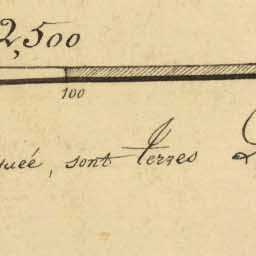 2,500
100
uée, sont Terres